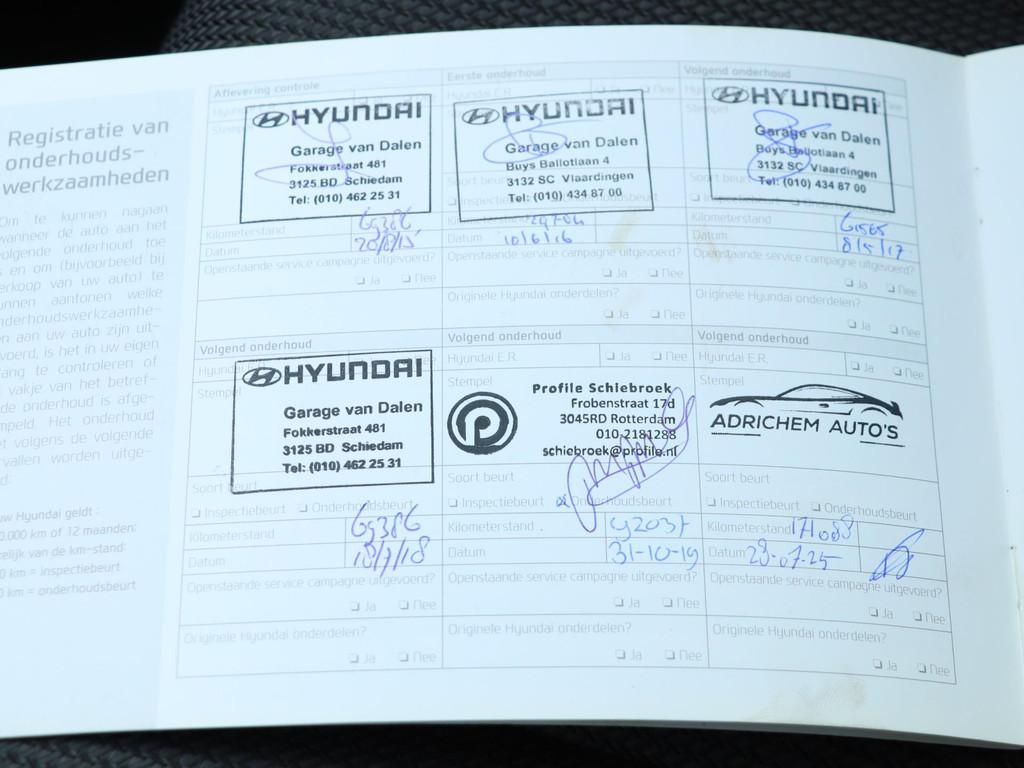 Registratie van
onderhouds-
werkzaamheden
Om te kunnen nagaan
wanneer de auto aan het
volgende onderhoud toe
is en om (bijvoorbeeld bij
verkoop van uw auto) te
kunnen aantonen welke
onderhoudswerkzaamhe-
den aan uw auto zijn uit-
gevoerd, is het in uw eigen
te controleren of
vakje van het betref-
de onderhoud is afge-
Het onderhoud
volgens de volgende
worden uitge-
uw Hyundai geldt :
0.000 km of 12 maanden:
van de km-stand:
0 km = inspectiebeurt
0 km = onderhoudsbeurt
Aflevering controle
Stempel
HYUNDAI
Garage van Dalen
Fokkerstraat 481
3125 BD Schiedam
Tel: (010) 462 25 31
Kilometerstand 69386
Datum 20/8/15
Openstaande service campagne uitgevoerd?
Ja Nee
Eerste onderhoud
Hyundai E.R. Ja Nee
HYUNDAI
Garage van Dalen
Buys Ballotlaan 4
3132 SC Vlaardingen
Tel: (010) 434 87 00
Soort beurt
Datum 10/6/16
Openstaande service campagne uitgevoerd?
Ja Nee
Originele Hyundai onderdelen?
Ja Nee
Volgend onderhoud
HYUNDAI
Garage van Dalen
Buys Ballotlaan 4
3132 SC Vlaardingen
Tel: (010) 434 87 00
Kilometerstand 61565
Datum 8/5/17
Openstaande service campagne uitgevoerd?
Ja Nee
Originele Hyundai onderdelen?
Ja Nee
Volgend onderhoud
Stempel
HYUNDAI
Garage van Dalen
Fokkerstraat 481
3125 BD Schiedam
Tel: (010) 462 25 31
Soort beurt
Inspectiebeurt Onderhoudsbeurt
Kilometerstand 69386
Datum 18/7/18
Openstaande service campagne uitgevoerd?
Ja Nee
Originele Hyundai onderdelen?
Ja Nee
Volgend onderhoud
Hyundai E.R. Ja Nee
Stempel
Profile Schiebroek
Frobenstraat 17d
3045RD Rotterdam
010-2181288
schiebroek@profile.nl
Soort beurt
Inspectiebeurt Onderhoudsbeurt
Kilometerstand
Datum 31-10-19
Openstaande service campagne uitgevoerd?
Ja Nee
Originele Hyundai onderdelen?
Ja Nee
Volgend onderhoud
Hyundai E.R. Ja Nee
Stempel
ADRICHEM AUTO'S
Soort beurt
Inspectiebeurt Onderhoudsbeurt
Kilometerstand 171088
Datum 23-07-25
Openstaande service campagne uitgevoerd?
Ja Nee
Originele Hyundai onderdelen?
Ja Nee